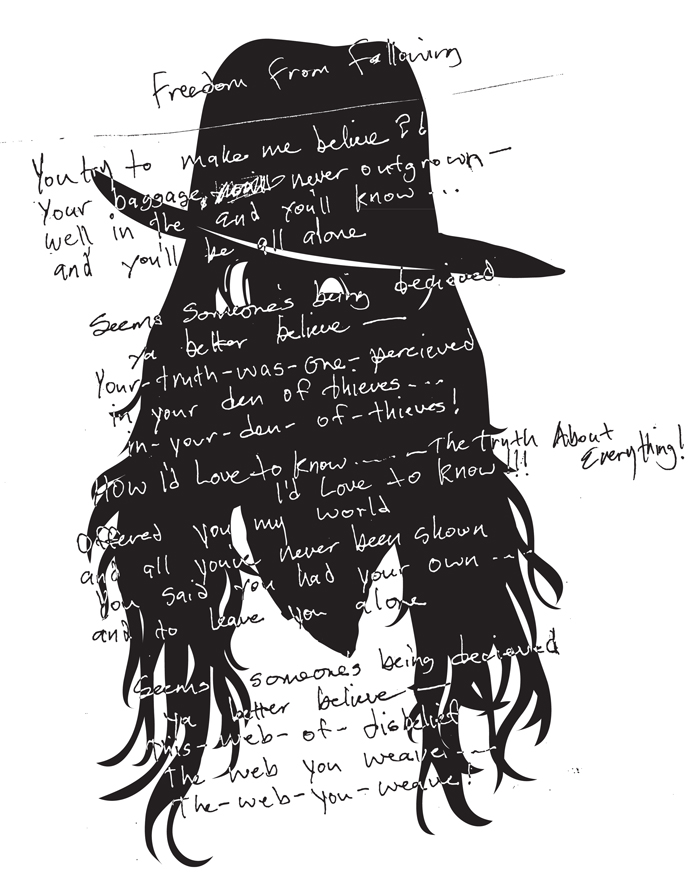 Freedom From Following
You try to make me believe ?!
Your baggage, never outgrown —
well in the and you'll know ...
and you'll be all alone
Seems someone's being decieved
ya better believe —
Your-truth-was-one-percieved
in your den of thieves ...
in-your-den-of-thieves!
How I'd Love to know ..... — The truth About Everything!
I'd Love to know !!!
Offered you my world
and all you've never been shown
You said you had your own ....
and to leave you alone
Seems someone's being decieved
ya better believe —
This-web-of-disbelief
The web you weave ....
The-web-you-weave!